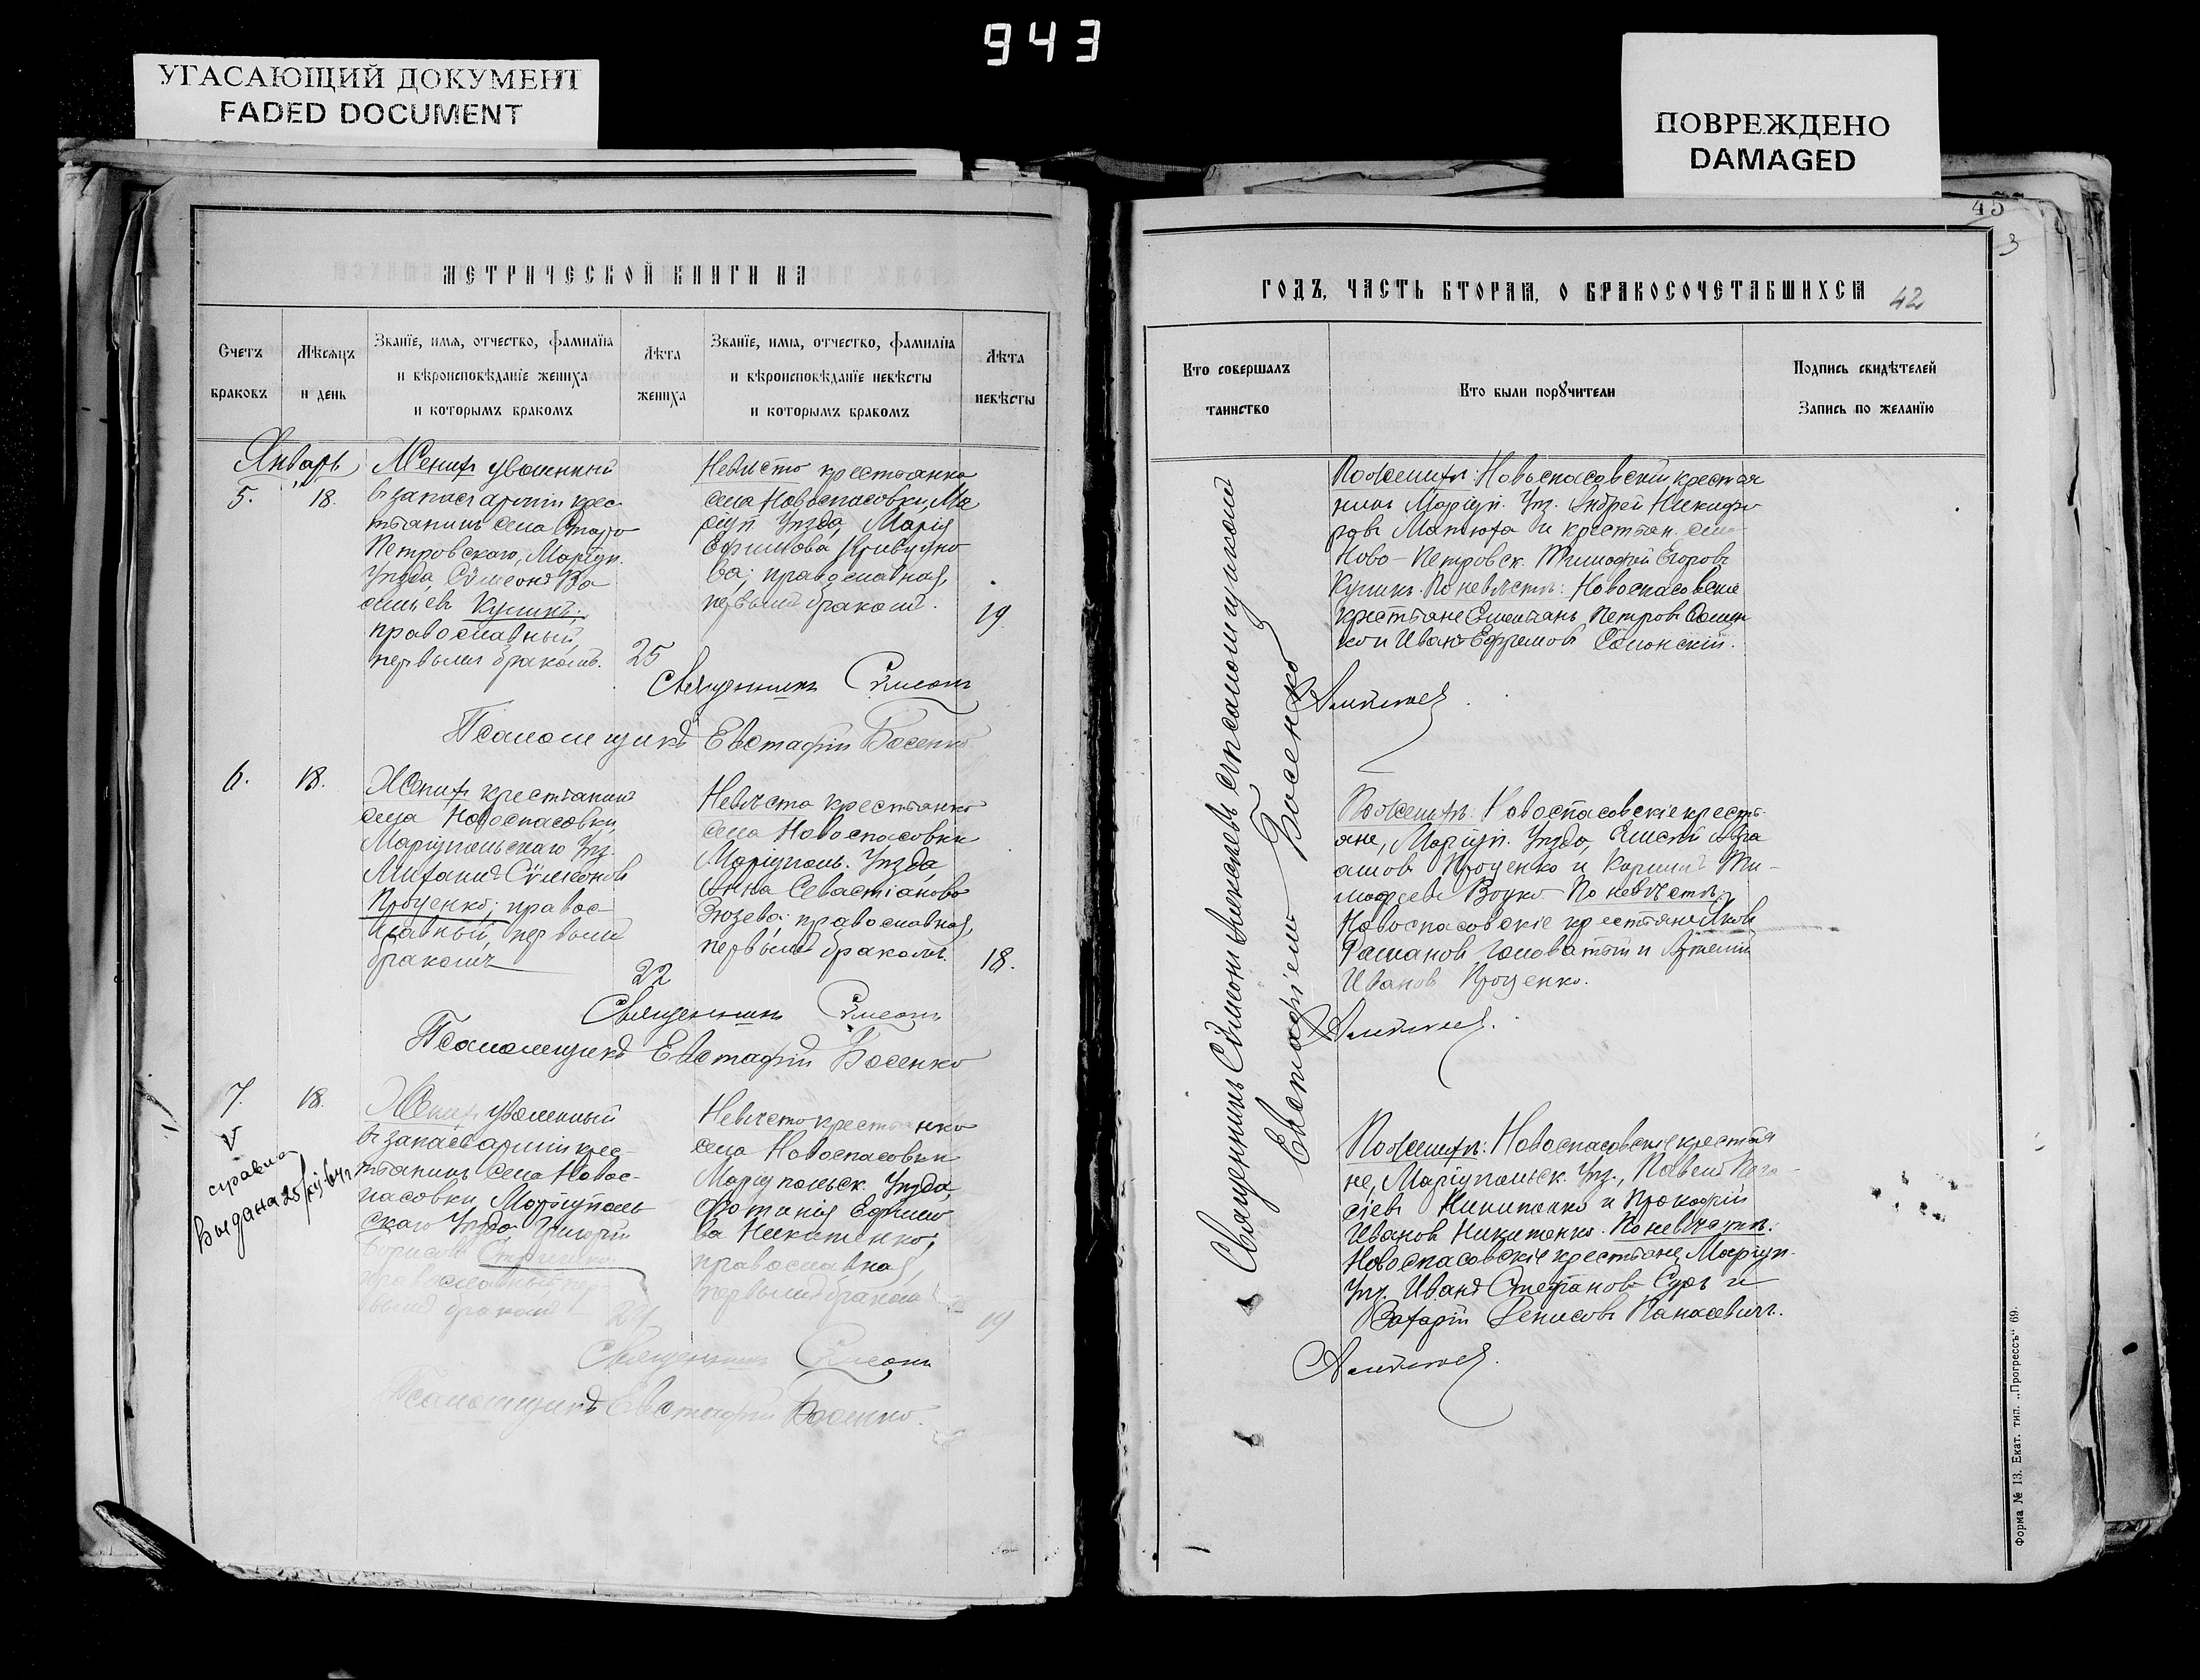 943
УГАСАЮЩИЙ ДОКУМЕНТ
FADED DOCUMENT
ПОВРЕЖДЕНО
DAMAGED
45
3
МЕТРИЧЕСКОЙ КНИГИ НА
Счетъ
браковъ
Мѣсяцъ
и день
Званїе, имѧ, отчество, фамилїѧ
и вѣроисповѣданїе жениха
и которымъ бракомъ
Лѣта
жениха
Званїе, имѧ, отчество, фамилїѧ
и вѣроисповѣданїе невѣсты
и которымъ бракомъ
Лѣта
невѣсты
Январь
5.
18.
Женихъ уволенный
въ запасъ арміи крес-
тьянинъ села Старо
Петровскаго, Маріуп.
Уѣзда, Сѵмеонъ Ва
сильевъ Куликъ;
православный,
первымъ бракомъ.
25
Невѣста крестьянка
села Новоспасовки, Ма
ріуп. Уѣзда, Марія
Ефимова Кривуцко
ва; православная,
первымъ бракомъ.
19
Священникъ Сѵмеонъ
Псаломщикъ Евстафій Босенко
6.
18.
Женихъ крестьянинъ
села Новоспасовки,
Маріупольскаго Уѣз.
Михаилъ Сѵмеоновъ
Проценко; правос-
лавный, первымъ
бракомъ
22
Невѣста крестьянка
села Новоспасовки
Маріуполь. Уѣзда,
Анна Севастіанова
Зюзева; православная,
первымъ бракомъ.
18.
Священникъ Сѵмеонъ
Псаломщикъ Евстафій Босенко
7.
18.
V
справка
выдана 25
Женихъ уволенный
въ запасъ арміи крес-
тьянинъ села Новос-
пасовки Маріуполь
скаго Уѣзда Григорій
Борисовъ
православный, пер-
вымъ бракомъ
Невѣста крестьянка
села Новоспасовки
Маріупольск. Уѣзда,
Фотинія Ефимо
ва Никитенко;
православная,
первымъ бракомъ
19
Священникъ Сѵмеонъ
Псаломщикъ Евстафій Босенко.
ГОДЪ, ЧАСТЬ ВТОРАѦ, О БРАКОСОЧЕТАВШИХСѦ
42
Кто совершалъ
таинство
Кто были порꙋчители
Подпись свидѣтелей
Запись по желанїю
Священникъ Сѵмеонъ Алексѣевъ съ псаломщикомъ
Евстафіемъ Босенко
По женихѣ: Новоспасовскій крестья
нинъ Маріуп. Уѣз. Андрей Никифо
ровъ Матюха и крестьян. села
Ново-Петровск. Тимофей Егоровъ
Куликъ. По невѣстѣ: Новоспасовскіе
крестьяне Емельянъ Петровъ
и Иванъ Ефремовъ
По женихѣ: Новоспасовскіе кресть-
яне, Маріуп. Уѣзда, Елисей Авра
амовъ Проценко и Ти-
мофеевъ Воцко. По невѣстѣ:
Новоспасовскіе крестьяне Яковъ
Романовъ Головатый и Артемій
Ивановъ Проценко.
По женихѣ: Новоспасовскіе крестья
не, Маріупольск. Уѣз., Павелъ
Никитенко и Прокофій
Ивановъ Никитенко. По невѣстѣ:
Новоспасовскіе крестьяне, Маріуп.
Уѣз. Иванъ Степановъ и
Захарій Денисовъ Панасевичъ.
Форма № 13. Екат. тип. „Прогрессъ“ 69.